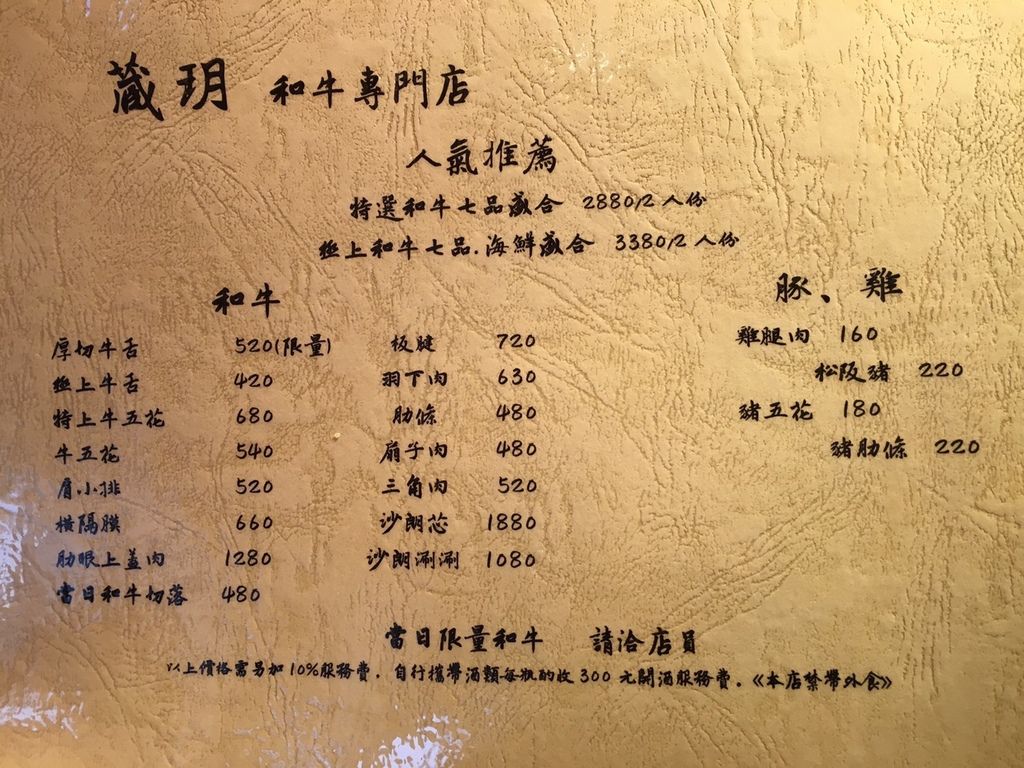 藏玥 和牛專門店
人氣推薦
特選和牛七品盛合 2880/2人份
極上和牛七品.海鮮盛合 3380/2人份
和牛
厚切牛舌 520(限量)
極上牛舌 420
特上牛五花 680
牛五花 540
肩小排 520
橫隔膜 660
肋眼上蓋肉 1280
當日和牛切落 480
板腱 720
羽下肉 630
肋條 480
扇子肉 480
三角肉 520
沙朗芯 1880
沙朗涮涮 1080
豚、雞
雞腿肉 160
松阪豬 220
豬五花 180
豬肋條 220
當日限量和牛 請洽店員
以上價格需另加10%服務費．自行攜帶酒類每瓶酌收300元開酒服務費．《本店禁帶外食》